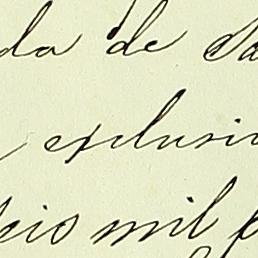 da de Sa
exclusi
eis mil